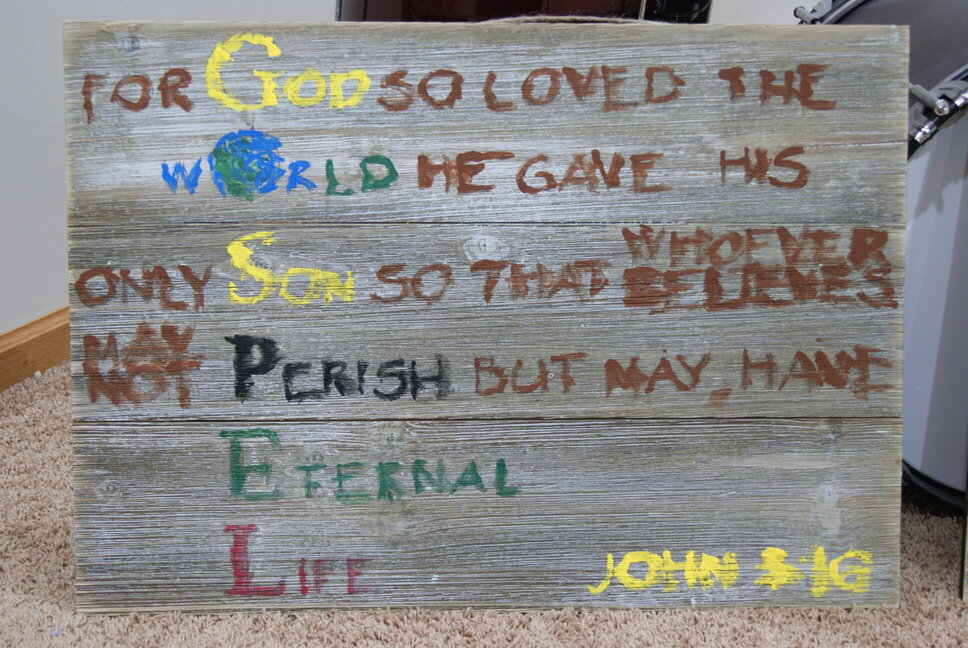 FOR GOD SO LOVED THE
WORLD HE GAVE HIS
ONLY SON SO THAT WHOEVER BELIEVES
MAY NOT PERISH BUT MAY HAVE
ETERNAL
LIFE
JOHN 3:16